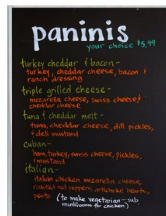 paninis-
your choice $5.99
turkey cheddar & bacon-
turkey, cheddar cheese, bacon &
ranch dressing
triple grilled cheese-
mozzarella cheese, swiss cheese &
cheddar cheese
tuna & cheddar melt-
tuna, cheddar cheese, dill pickles,
& deli mustard
cuban-
ham, turkey, swiss cheese, pickles,
& mustard
italian-
italian chicken, mozzarella cheese,
roasted red peppers, artichoke hearts,
pesto (to make vegetarian-sub
mushrooms for chicken)